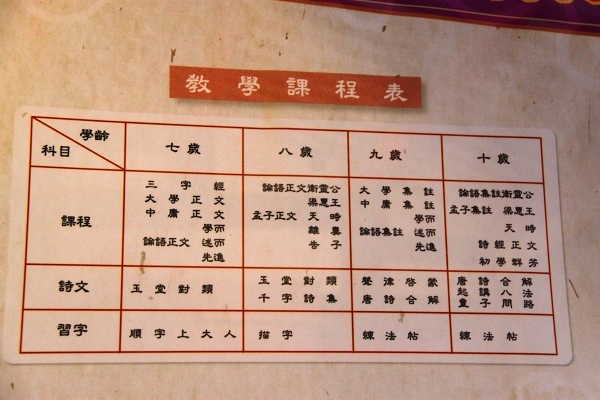 教學課程表
學齡
科目
七歲
八歲
九歲
十歲
課程
三字經
大學正文
中庸正文
學而
論語正文 述而
先進
論語正文衛靈公
梁惠王
孟子正文 天時
離婁
告子
大學集註
中庸集註
學而
論語集註 述而
先進
論語集註衛靈公
孟子集註 梁惠王
天時
詩經正文
初學群芳
詩文
玉堂對類
玉堂對類
千字詩集
聲律啓蒙
唐詩合解
唐詩合解
起講八法
童子問路
習字
順字上大人
描字
練法帖
練法帖